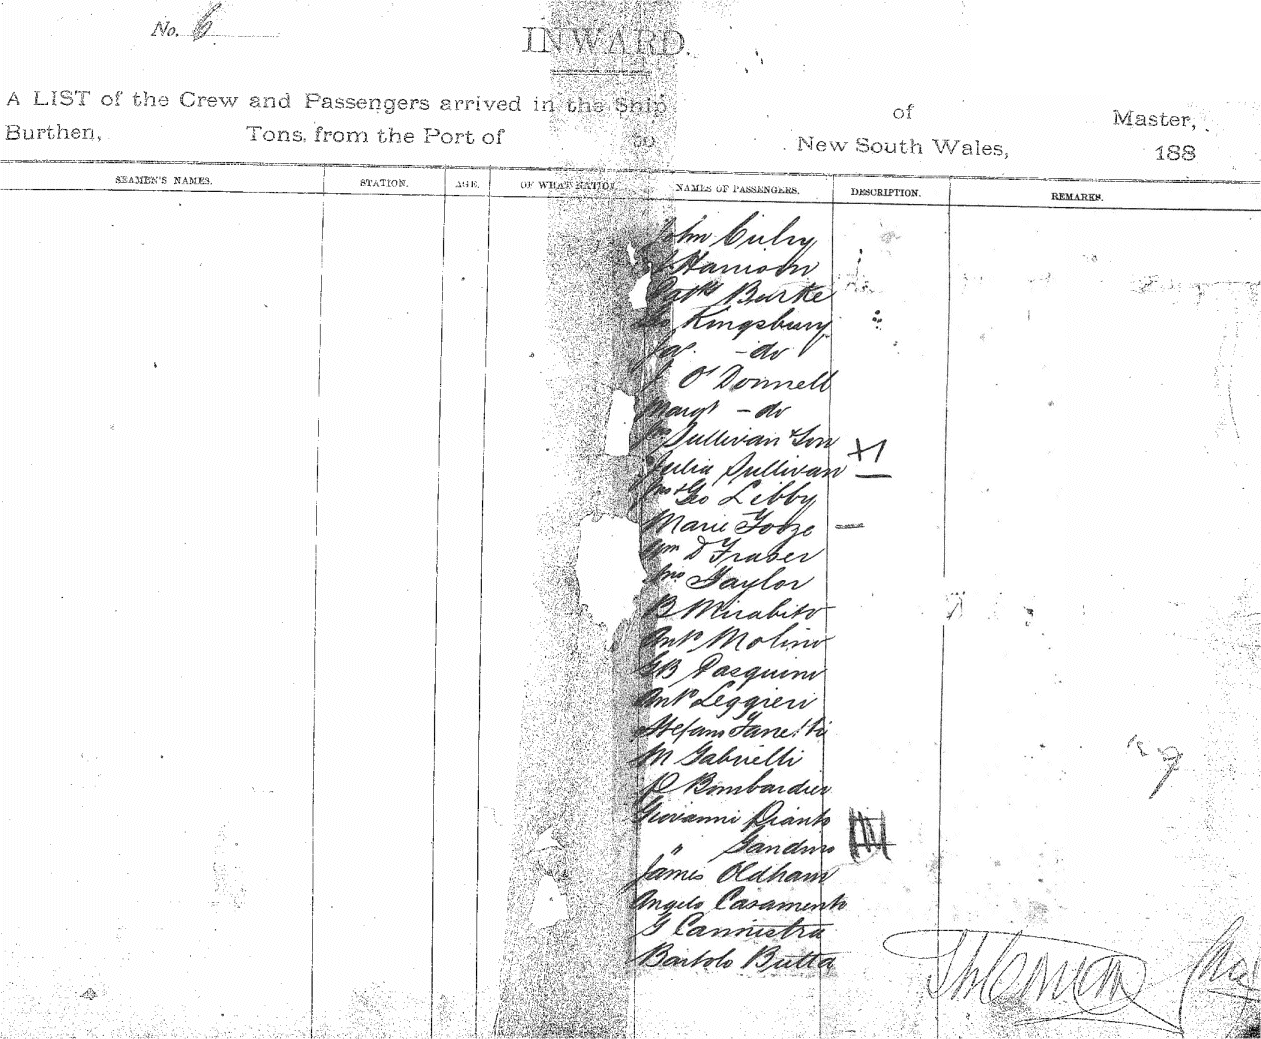 No. 6
INWARD.
A LIST of the Crew and Passengers arrived in the Ship of Master,
Burthen, Tons, from the Port of to New South Wales, 188
SEAMEN'S NAMES. STATION. AGE. OF WHAT NATION NAMES OF PASSENGERS. DESCRIPTION. REMARKS.
John
Harrison
Patk Burke
Geo Kingsbury
Jas. - do
J O'Donnell
Margt - do
Jno Sullivan & Son
Julia Sullivan
Jno & Geo Libby
Marie
Wm D Fraser
Jno Taylor
B Mirabito
Anto Molino
GB Pasquini
Anto Leggieri
Stefano
M Gabrielli
P Bombardier
Giovanni
" Gandino
James Oldham
Angelo Casamento
G Cannistra
Bartolo Butta